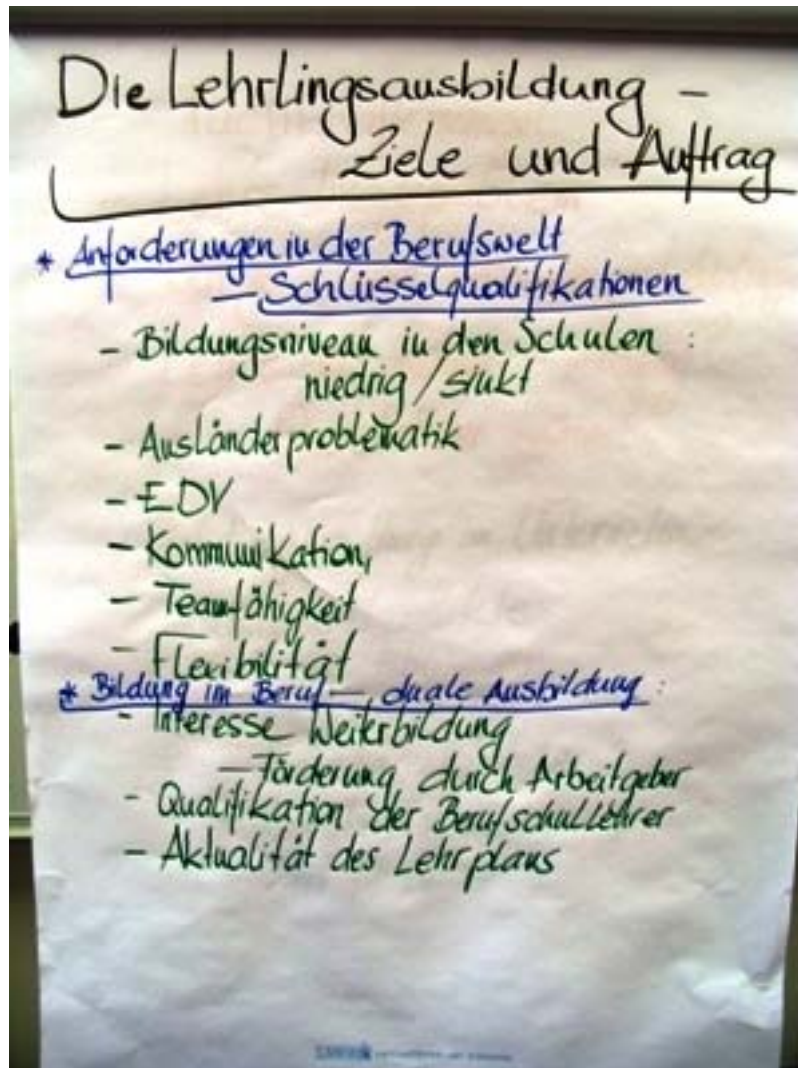 Die Lehrlingsausbildung –
Ziele und Auftrag
* Anforderungen in der Berufswelt
– Schlüsselqualifikationen
- Bildungsniveau in den Schulen :
niedrig / sinkt
- Ausländerproblematik
- EDV
- Kommunikation,
- Teamfähigkeit
- Flexibilität
* Bildung im Beruf – duale Ausbildung :
- Interesse Weiterbildung
– Förderung durch Arbeitgeber
- Qualifikation der Berufschullehrer
- Aktualität des Lehrplans